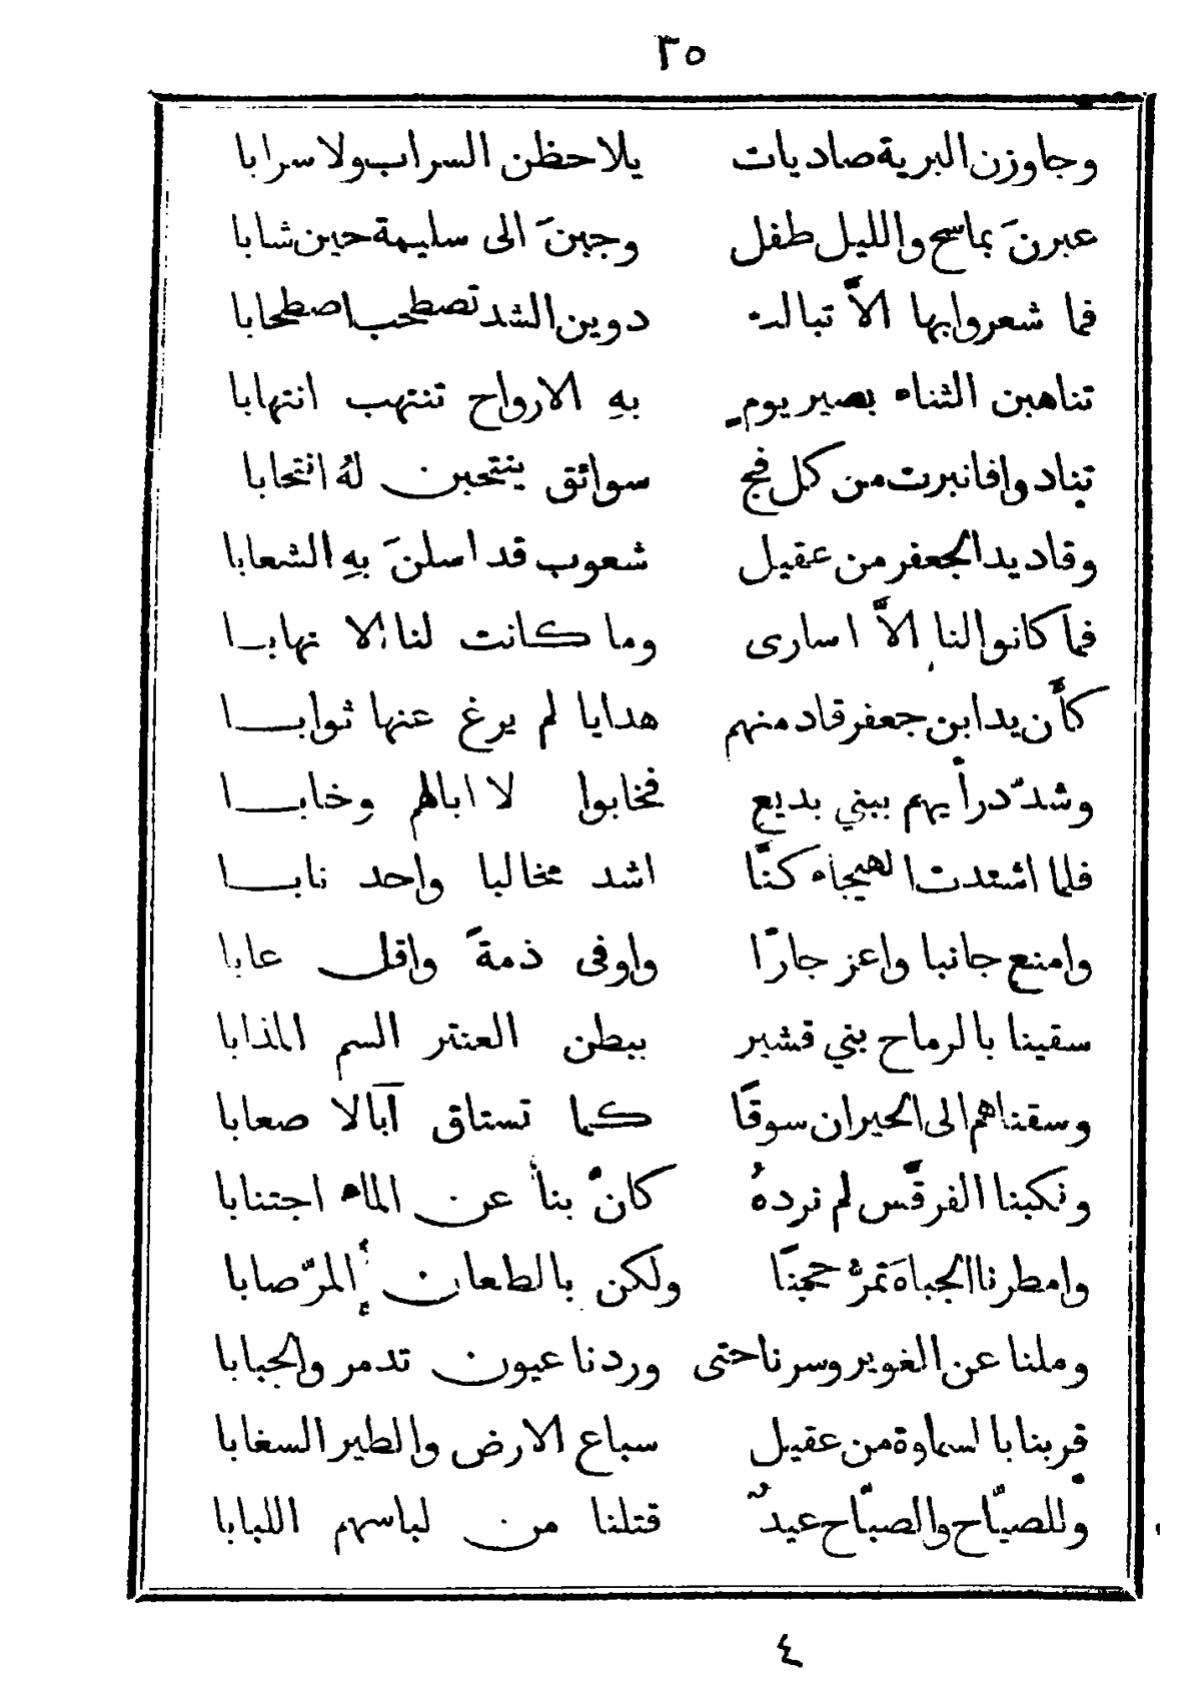 ٣٥
وجاوزن البرية صاديات يلاحظن السراب ولا سرابا
عبرنَ بماسح والليل طفل وجبنَ الى سليمة حين شابا
فما شعروا بها الاَّ تبالت دوين الشد تصطحب اصطحابا
تناهبن الثناء بصبر يومٍ بهِ الارواح تنتهب انتهابا
تنادوا فانبرت من كل فج سوائق ينتحبن لهُ انتحابا
وقاد يدا لجعفر من عقيل شعوب قد اسلنَ بهِ الشعابا
فما كانوا لنا الاَّ اسارى وما كانت لنا الا نهابا
كأن يدا بن جعفر قاد منهم هدايا لم يرغ عنها ثوابا
وشدّ درأيهم ببني بديع فخابوا لا ابالهم وخابا
فلما اشتدت الهيجاء كنَّا اشد مخالبا واحد نابا
وامنع جانبا واعز جارًا واوفى ذمةً واقل عابا
سقينا بالرماح بني قشير ببطن العنتر السم المذابا
وسقناهم الى الحيران سوقًا كما تستاق آبالا صعابا
ونكبنا الفرقّس لم نردهُ كانَّ بنا عن الماء اجتنابا
وامطرنا الجباةَ تمرُّ حجنًا ولكن بالطعان المرّ صابا
وملنا عن الغوير وسرنا حتى وردنا عيون تدمر والجبابا
قربنا بالسماوة من عقيل سباع الارض والطير السغابا
وللصيَّاح والصبَّاح عيدٌ قتلنا من لباسهم اللبابا
٤